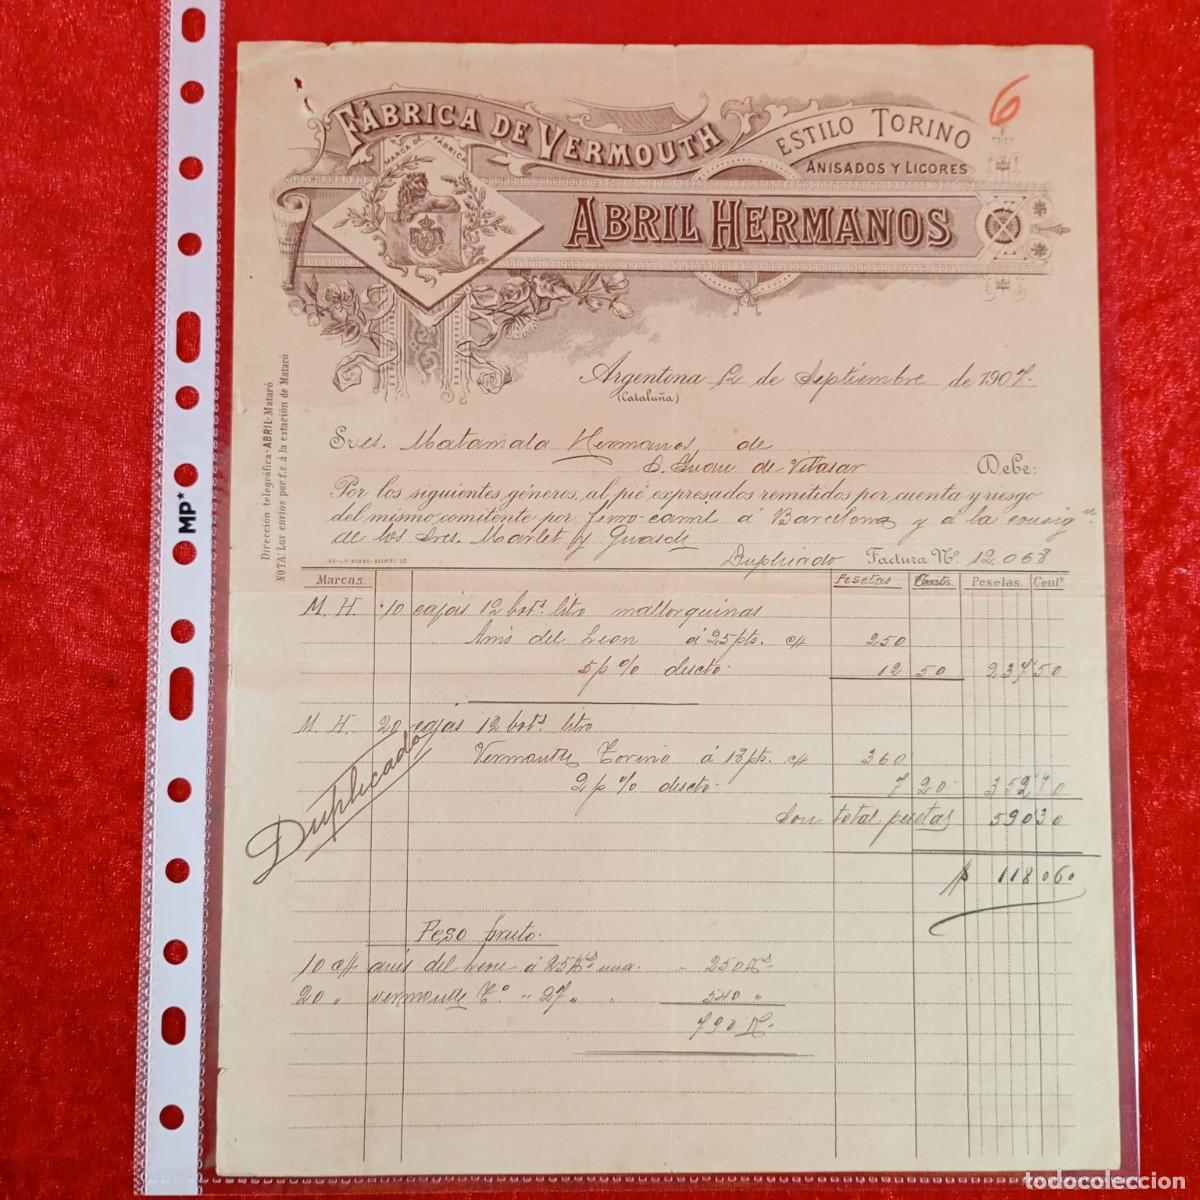 6
FÁBRICA DE VERMOUTH
ESTILO TORINO
ANISADOS Y LICORES
MARCA DE FÁBRICA
ABRIL HERMANOS
Argentona 12 de Septiembre de 1907.
(Cataluña)
Sres. Matamala Hermanos de
S. Juan de Vilasar Debe:
Por los siguientes géneros, al pié expresados remitidos por cuenta y riesgo
del mismo comitente por ferro-carril á Barcelona y á la consig.n
de los Sres. Marlet y Guasch
Duplicado Factura Nº. 12.068
Dirección telegráfica-ABRIL-Mataró.
NOTA: Los envios por f.c. á la estación de Mataró.
MP*
Marcas. Pesetas. Pesetas. Centº
M. H. 10 cajas 12 bots. litro mallorquinas
Anis del Leon á 25 pts. c/ 250
5 p % descto. 12 50 237 50
M. H. 20 cajas 12 bots. litro
Vermouth Torino á 18 pts. c/ 360
2 p % descto. 7 20 352 80
Duplicado
Son total pesetas 590 30
118 060
Peso bruto.
10 c/ anis del Leon á 25 Ks. una. " 250 Ks.
20 " vermouth T.o " 27 " " 540 "
790 K.
todocoleccion